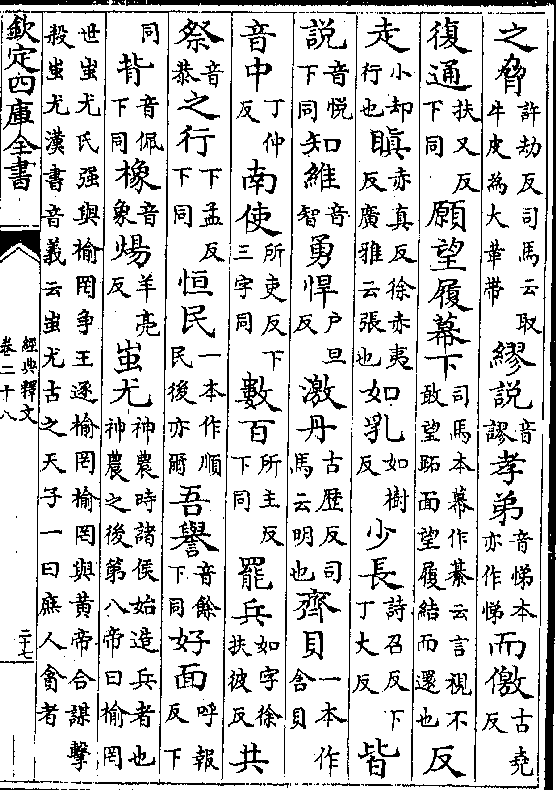 之脅許劫反司馬云取牛皮為大革帶繆說音謬孝弟音悌本亦作悌而儌古堯反
復通扶又反下同願望履幕下司馬本幕作綦云言視不敢望跖面望履結而還也反
走小却行也瞋赤真反徐赤夷反廣雅云張也如乳如樹反少長詩召反下丁丈反皆
說音悅下同知維音智勇悍戶旦反激丹古歷反司馬云明也齊貝一本作含貝
音中丁仲反南使所吏反下三字同數百所主反下同罷兵如字徐扶彼反共
祭音恭之行下孟反下同恒民一本作順民後亦爾吾譽音餘下同好面呼報反下
同背音佩下同橡音象煬羊亮反蚩尤神農時諸侯始造兵者也神農之後第八帝曰榆罔
世蚩尤氏强與榆罔争王逐榆罔榆罔與黃帝合謀擊殺蚩尤漢書音義云蚩尤古之天子一曰庶人貪者
欽定四庫全書
經典釋文
卷二十八
二十七